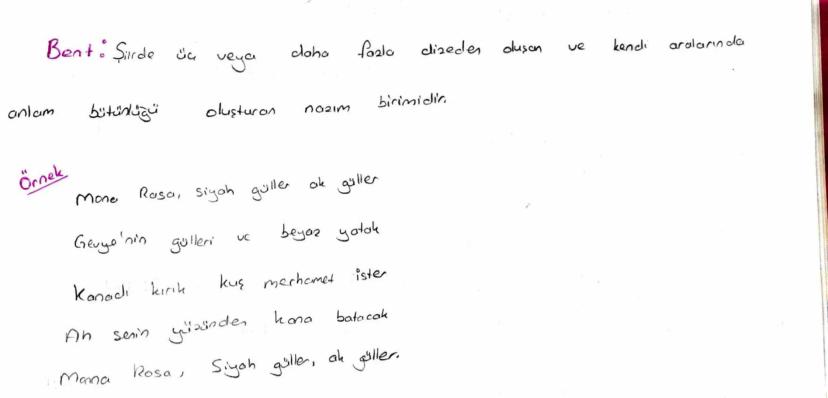 Bent: Şiirde üç veya daha fazla dizeden oluşan ve kendi aralarında
anlam bütünlüğü oluşturan nazım birimidir.
Örnek
Mona Rosa, siyah güller ak güller
Geyve'nin gülleri ve beyaz yatak
Kanadı kırık kuş merhamet ister
Ah senin yüzünden kana batacak
Mona Rosa, Siyah güller, ak güller.